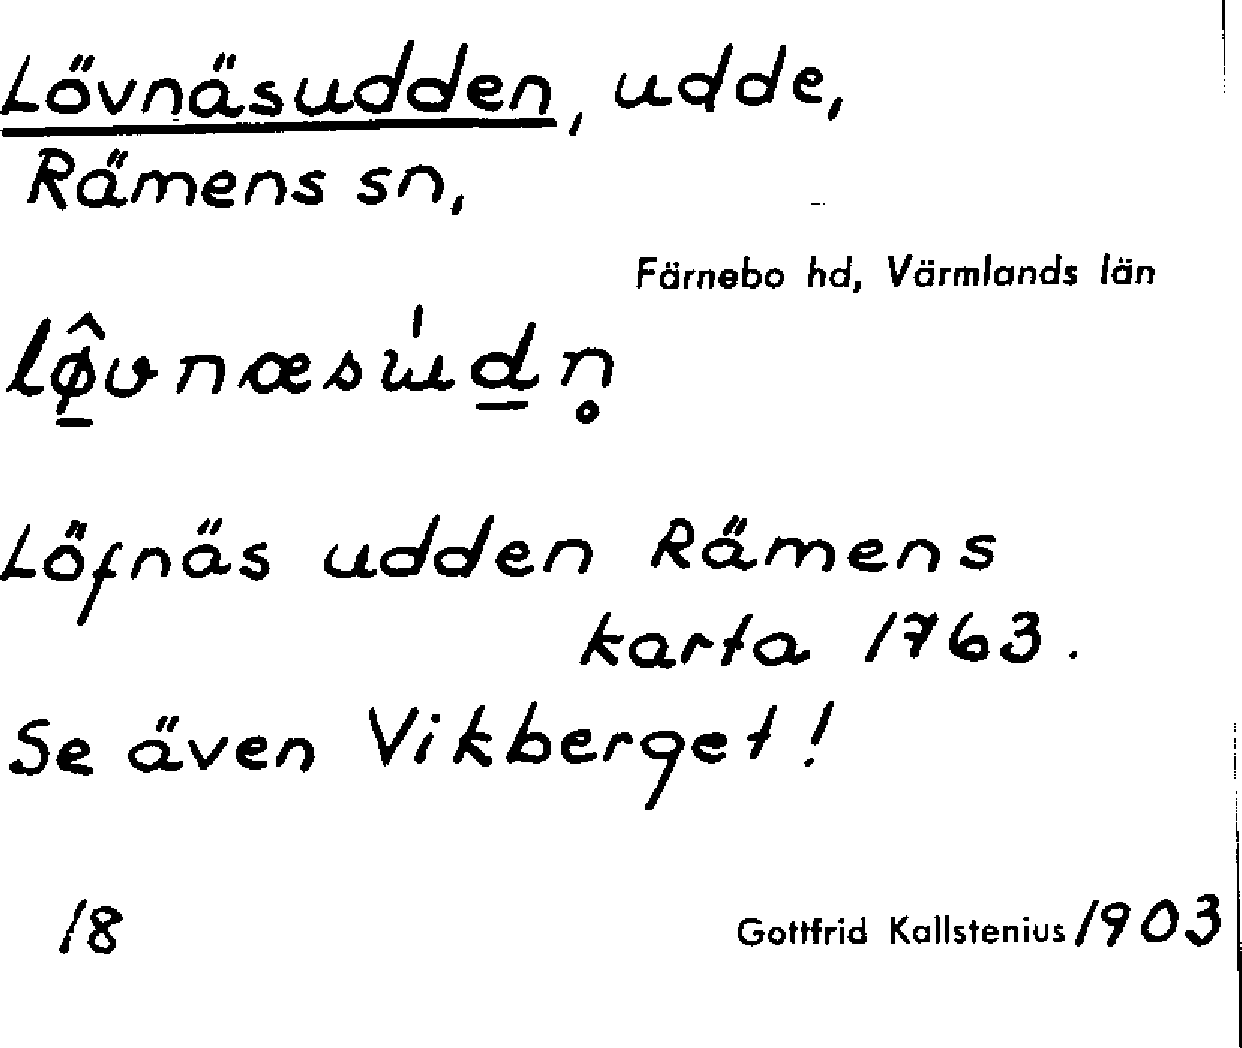 Lövnäsudden, udde,
Rämens sn,
Färnebo hd, Värmlands län
lø̲̂vnæsu̍d̲n̥
Löfnäs udden Rämens
karta 1763.
Se även Vikberget!
18
Gottfrid Kallstenius 1903